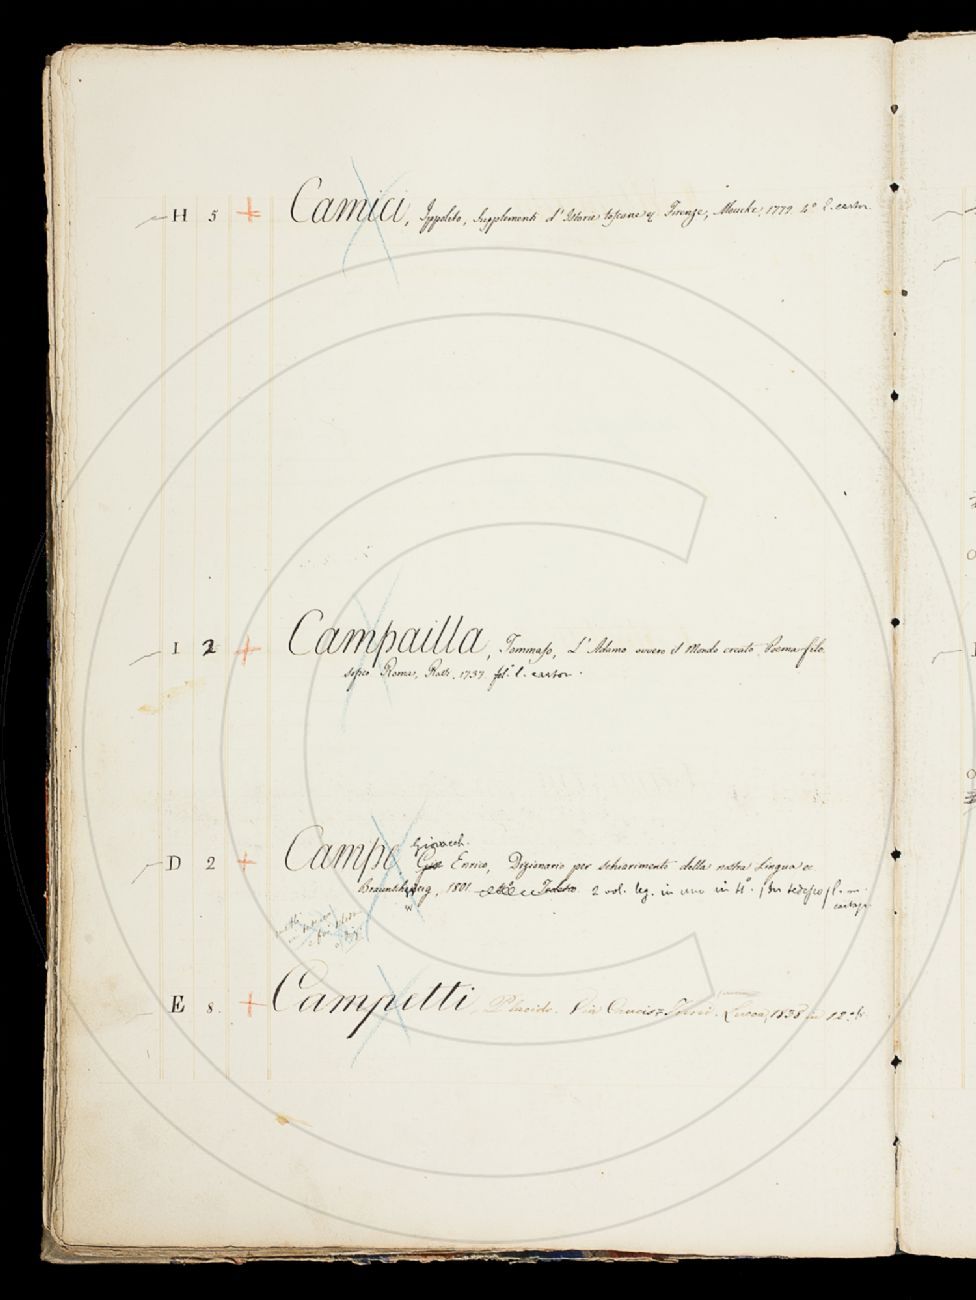 H 5 + Camici, Ippolito, Supplementi d'Istorie toscane 4 Firenze, Moucke, 1779 4° l. carton
I 2 + Campailla, Tommaso, L'Adamo ovvero il Mondo creato Poema filo
sofico Roma, 1737. fol. l. carton.
Gioacch.
D 2 + Campe Enrico, Dizionario per schiarimento della nostra Lingua
Braunschweig, 1801 Tedesco 2 vol. leg. in uno in 4°. / In tedesco / l. in
cartap.
E 8. + Campetti, Placido. Via Crucis Lucca, 1838 in 12°